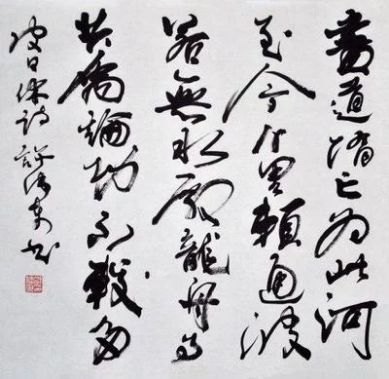 盡道隋亡為此河
至今千里賴通波
若無水殿龍舟事
共禹論功不較多
皮日休詩 許 书